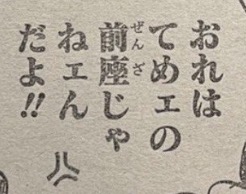 おれは
てめェの
前座じゃ
ねェん
だよ!!